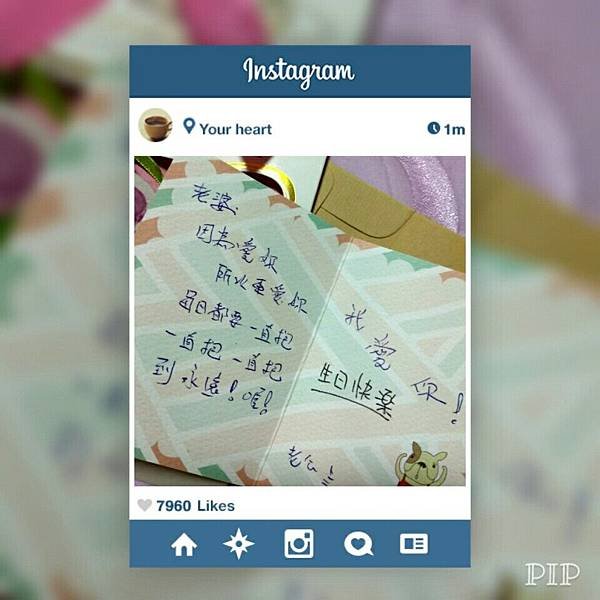 Instagram
Your heart
1m
老婆、
因為愛妳
所以愛妳
每日都要一直抱
一直抱 一直抱
到永遠！喔！
我愛你！
生日快樂
老公
7960 Likes
PIP